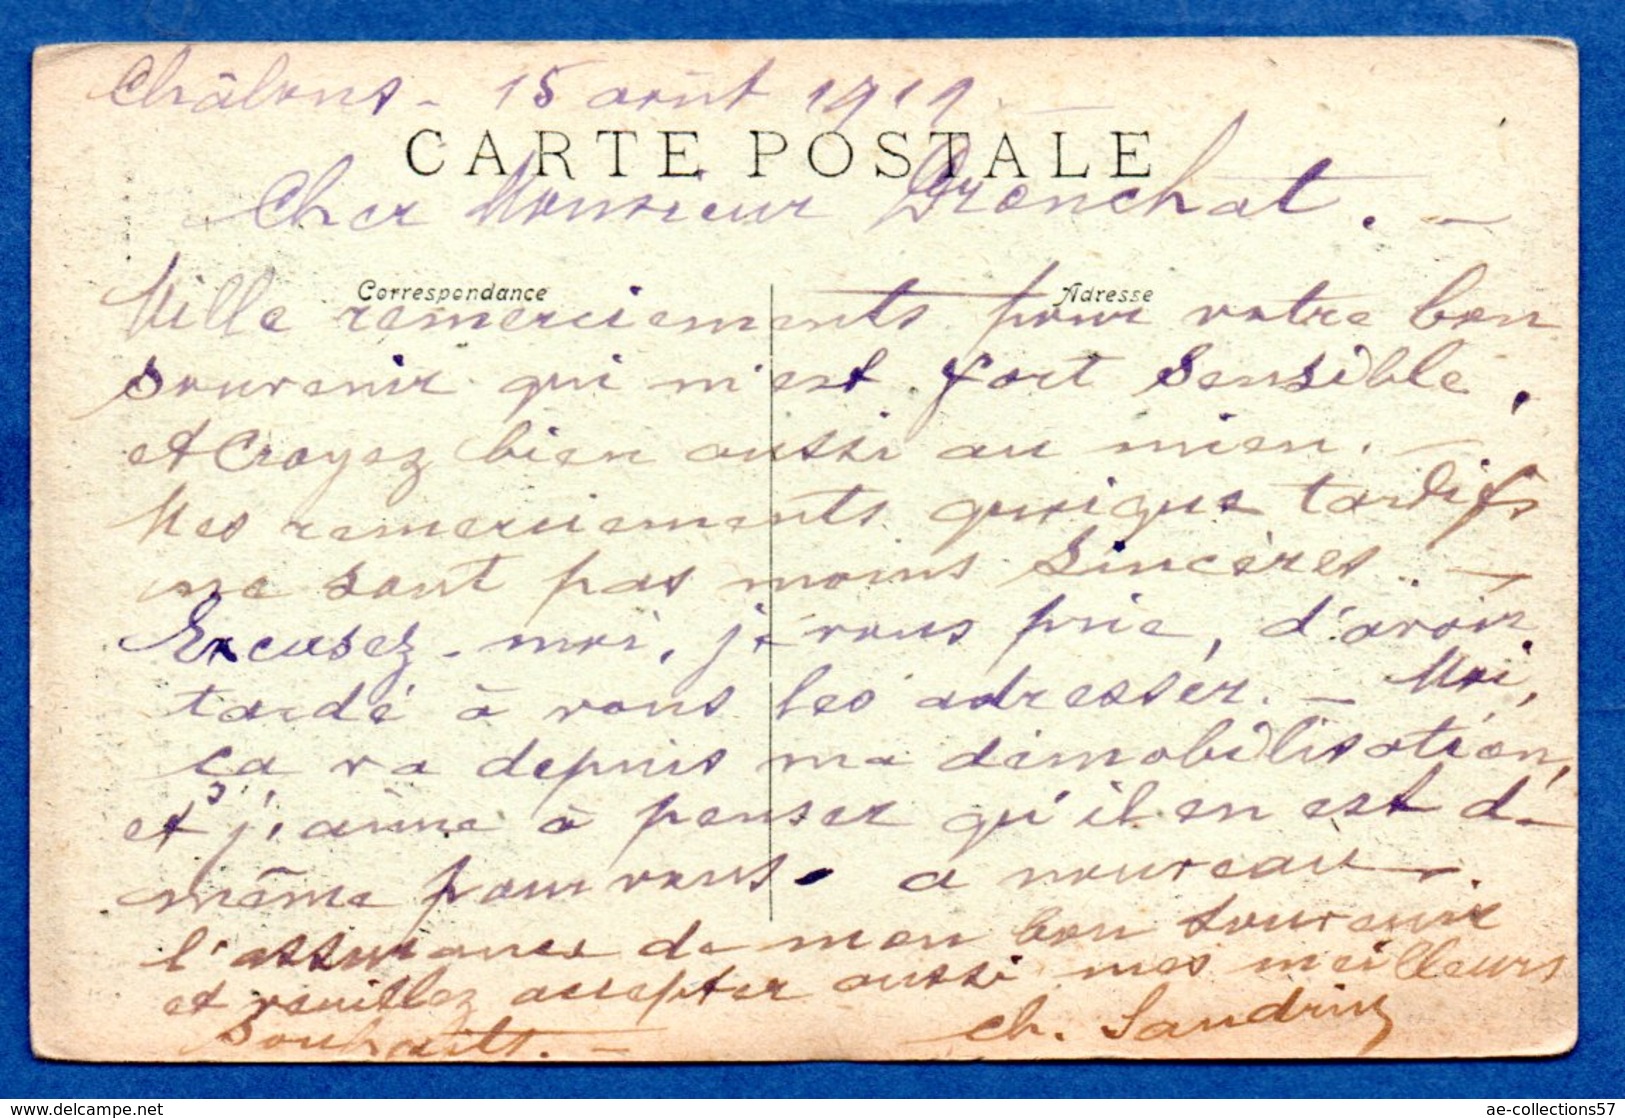 Châlons - 15 août 1919
CARTE POSTALE
Cher Monsieur
Correspondance
Adresse
Mille remerciements pour votre bon
souvenir qui m'est fort sensible,
et croyez bien aussi au mien. -
Mes remerciements quoique tardifs
ne sont pas moins sincères. -
Excusez-moi, je vous prie, d'avoir
tardé à vous les adresser. - Moi,
ça va depuis ma démobilisation,
et j'aime à penser qu'il en est de
même pour vous. A nouveau
l'assurance de mon bon souvenir
et veuillez accepter aussi mes meilleurs
souhaits. -
Ch. Sandrin
ae-collections57
https://www.delcampe.net